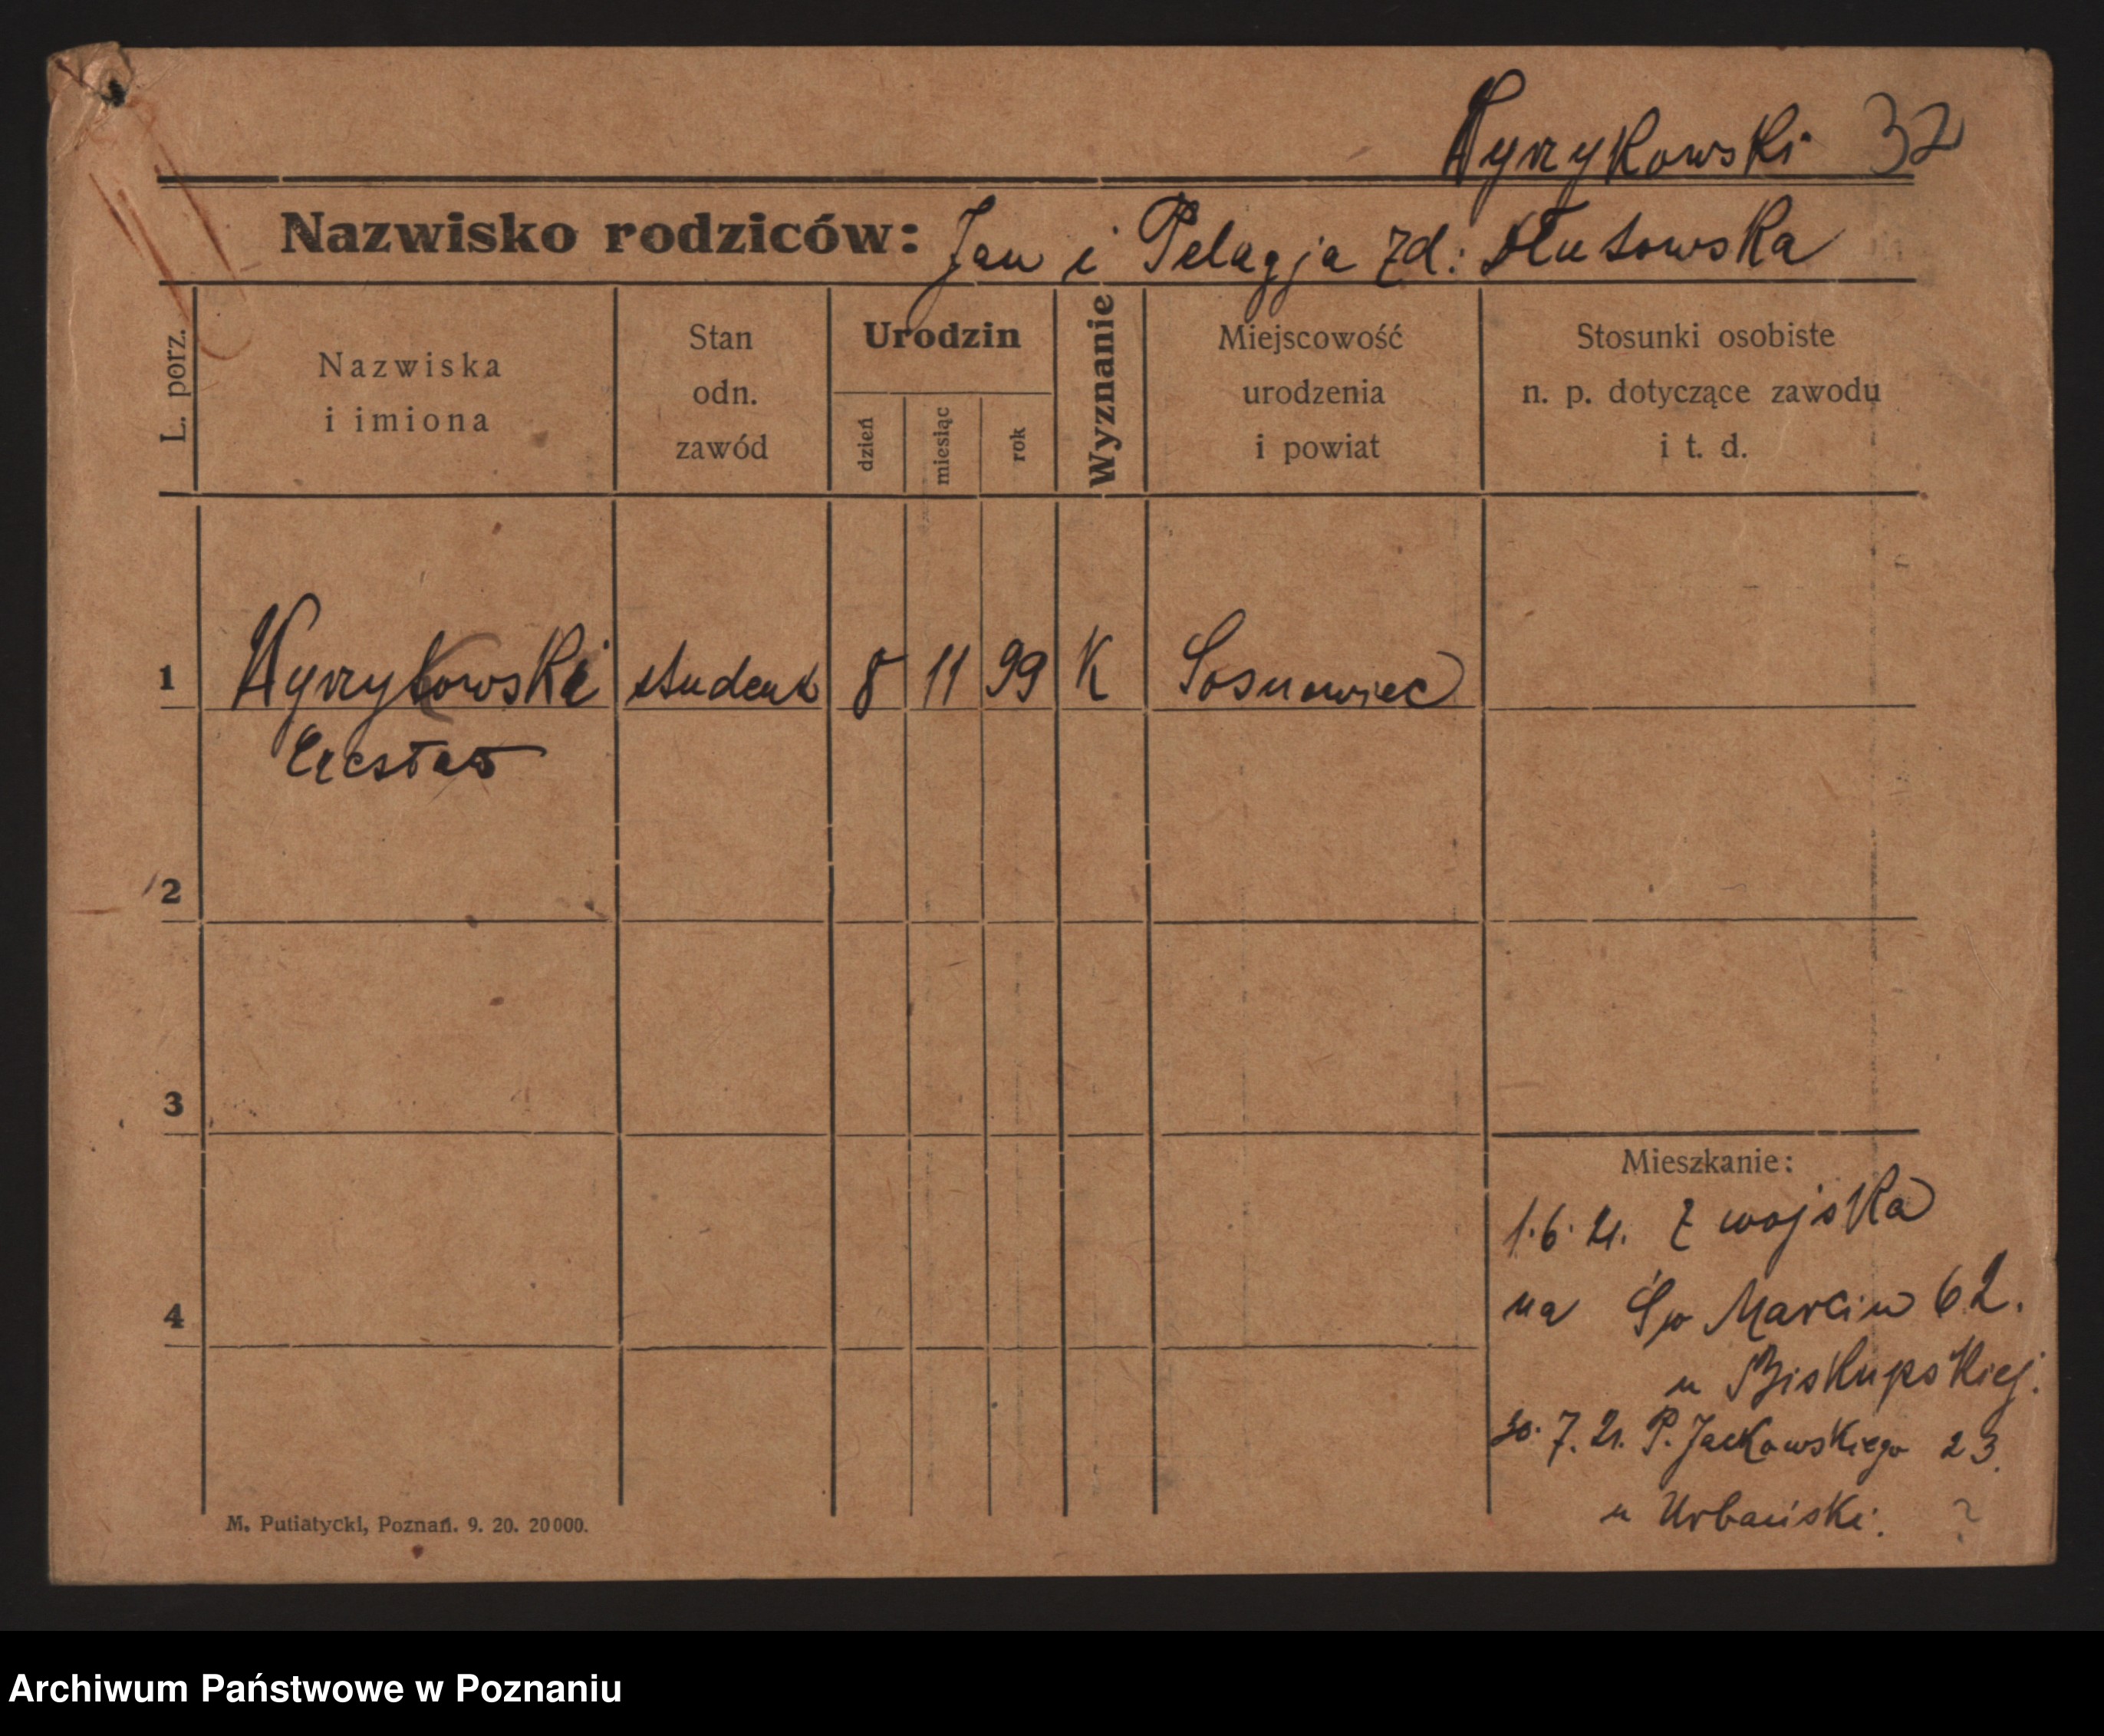 Wyrzykowski 32
Nazwisko rodziców: Jan i Pelagja zd: Dłutowska
L. porz.
Nazwiska
i imiona
Stan
odn.
zawód
Urodzin
dzień
miesiąc
rok
Wyznanie
Miejscowość
urodzenia
i powiat
Stosunki osobiste
n. p. dotyczące zawodu
i t. d.
1 Wyrzykowski student 8 11 99 K Sosnowiec
Czesław
2
3
Mieszkanie:
1.6.21. z wojska
4
na Św Marcin 62.
u Biskupskiej.
30.7.21. P. Jackowskiego 23.
u Urbański. ?
M. Putiatycki, Poznań. 9. 20. 20000.
Archiwum Państwowe w Poznaniu